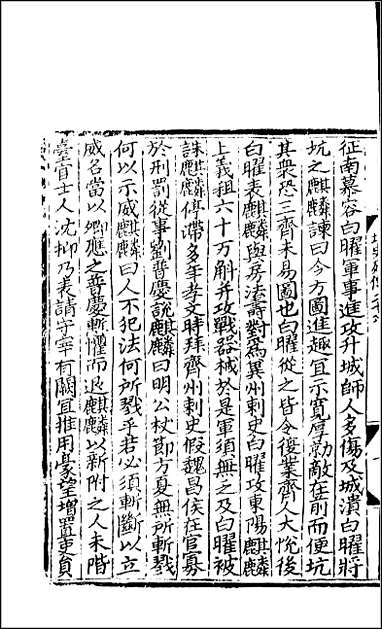 征南慕容白曜軍事進攻升城師人多傷及城潰白曜將
坑之麒麟諫曰今方圖進趣宜示寬厚勍敵在前而便坑
其衆恐三齊未易圖也白曜從之皆令復業齊人大悅後
白曜表麒麟與房法壽對爲冀州刺史白曜攻東陽麒麟
上義租六十万斛并攻戰器械於是軍須無乏及白曜被
誅麒麟停滯多年孝文時拜齊州刺史假魏昌侯在官寡
於刑罰從事劉普慶說麒麟曰明公杖節方夏無所斬戮
何以示威麒麟曰人不犯法何所戮乎若必須斬斷以立
威名當以卿應之普慶慙懼而退麒麟以新附之人未階
臺宦士人沈抑乃表請守宰有闕宜推用豪望增置吏員